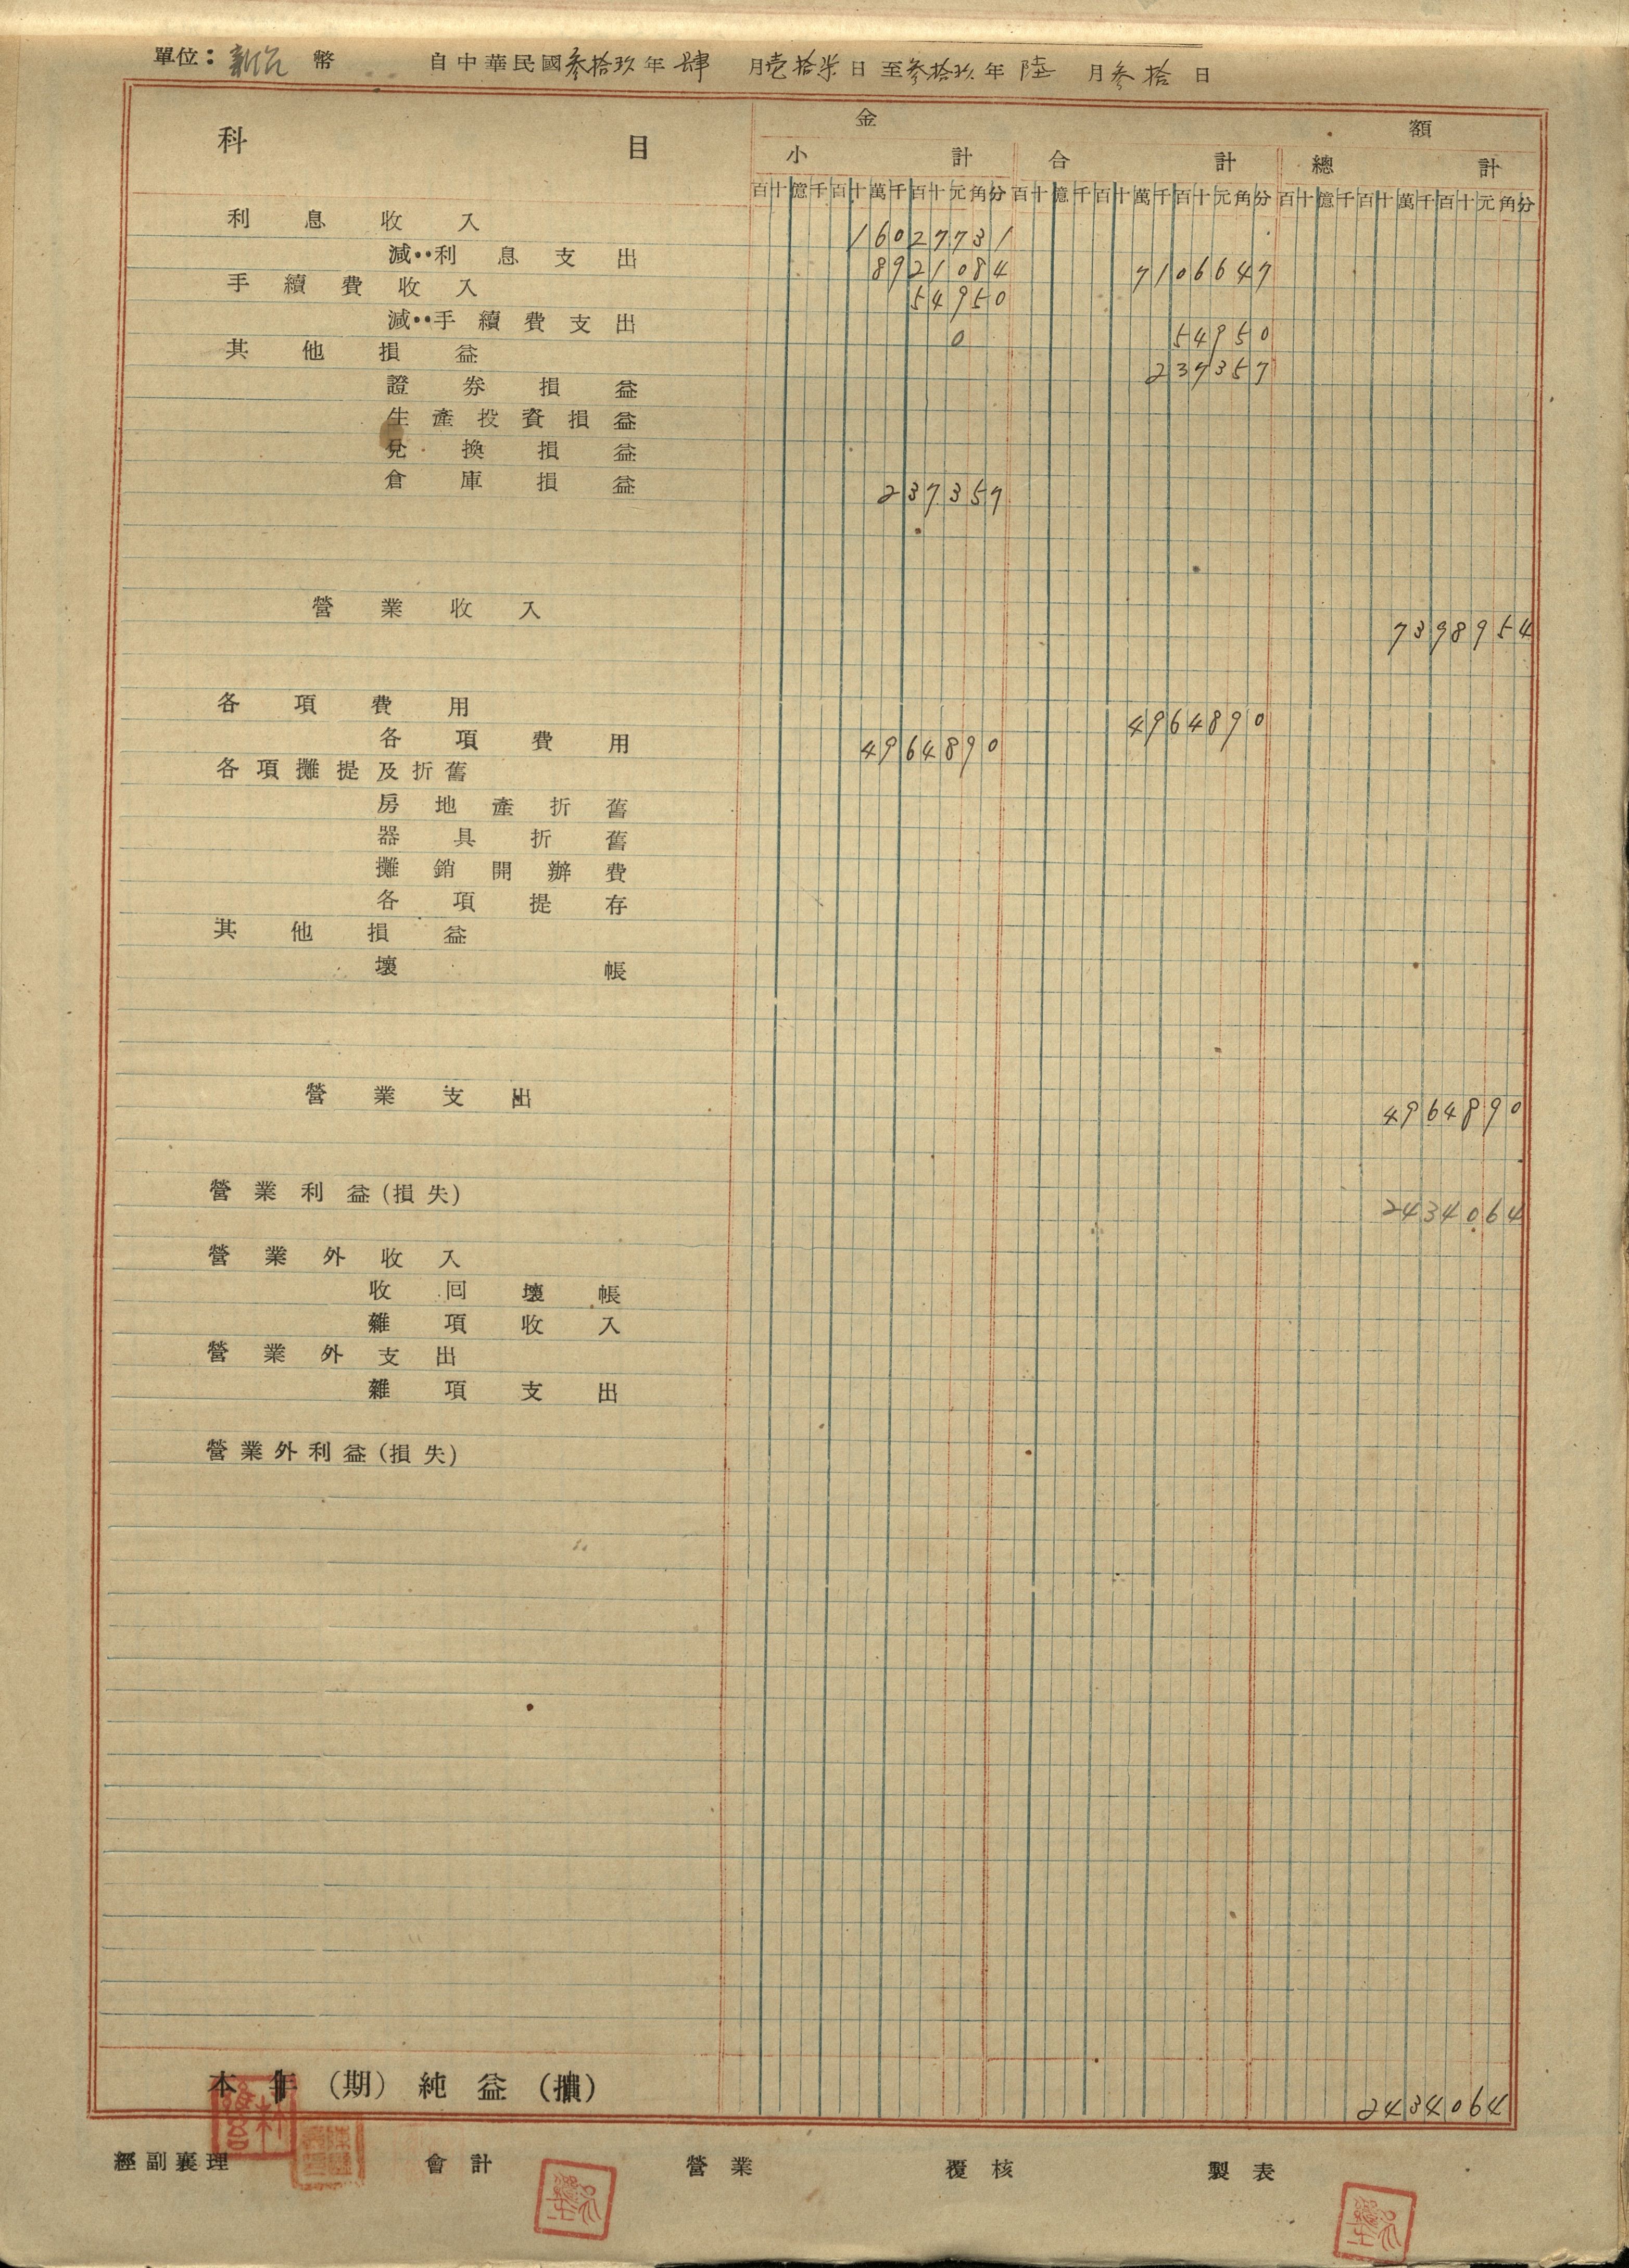 單位：新台幣 自中華民國叁拾玖年肆月壹拾柒日至叁拾玖年陸月叁拾日
科目 金額
小計 合計 總計
百十億千百十萬千百十元角分 百十億千百十萬千百十元角分 百十億千百十萬千百十元角分
利息收入 16027731
減：利息支出 8921084 7106647
手續費收入 54950
減：手續費支出 0 54950
其他損益 237357
證券損益
生產投資損益
兌換損益
倉庫損益 237357
營業收入 7398954
各項費用 4964890
各項費用 4964890
各項攤提及折舊
房地產折舊
器具折舊
攤銷開辦費
各項提存
其他損益
壞帳
營業支出 4964890
營業利益(損失) 2434064
營業外收入
收回壞帳
雜項收入
營業外支出
雜項支出
營業外利益(損失)
本年(期)純益(損) 2434064
經副襄理 會計 營業 覆核 製表